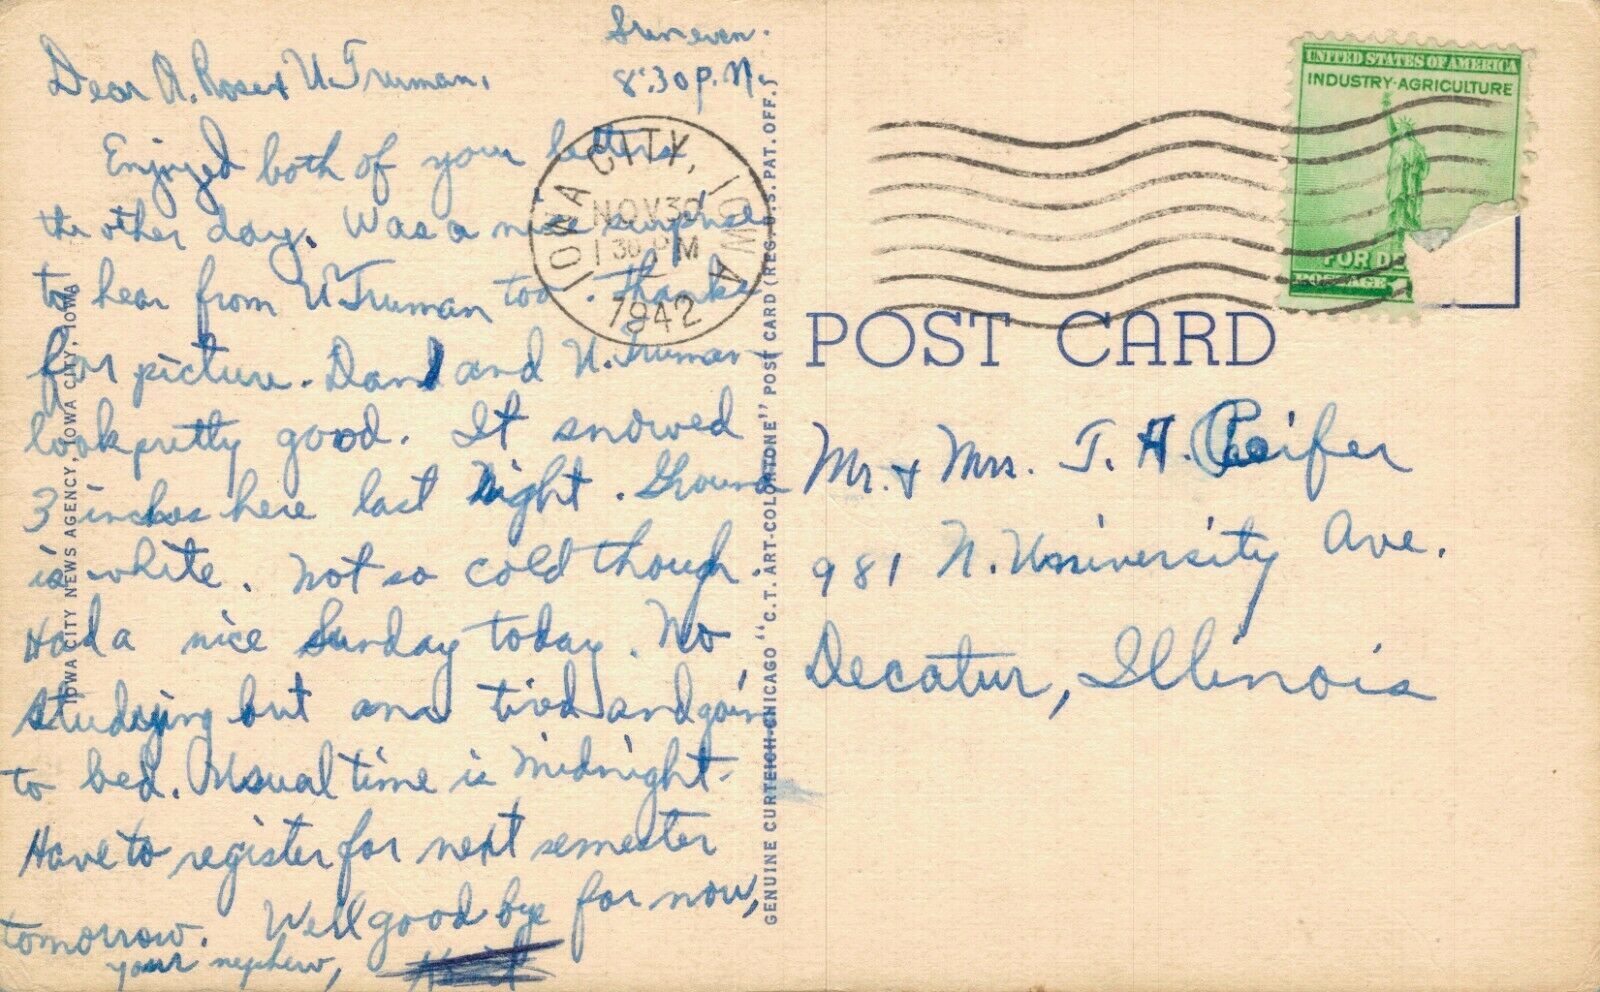 Sun even.
8:30 p.M.
Dear A. Rose + U. Truman,
Enjoyed both of your letters
the other day. Was a nice surprise
to hear from U Truman too. Thanks
for picture. Dan and U. Truman
look pretty good. It snowed
3 inches here last night. Ground
is white. Not so cold though.
Had a nice Sunday today. No
studying but am tired and goin
to bed. Usual time is midnight.
Have to register for next semester
tomorrow. Well good bye for now,
your nephew,
IOWA CITY, IOWA
NOV 30
1 30 PM
1942
IOWA CITY NEWS AGENCY, IOWA CITY, IOWA
GENUINE CURTEICH-CHICAGO "C.T. ART-COLORTONE" POST CARD (REG. U.S. PAT. OFF.)
UNITED STATES OF AMERICA
INDUSTRY-AGRICULTURE
FOR D
POSTAGE
POST CARD
Mr. + Mrs. T. H. Peifer
981 N. University Ave.
Decatur, Illinois